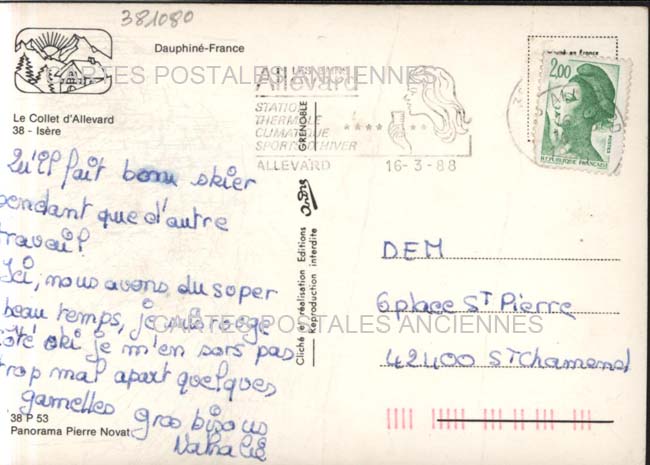 381080
Dauphiné-France
CARTES POSTALES ANCIENNES
Le Collet d'Allevard
38 - Isère
Allevard
STATION
THERMALE
CLIMATIQUE
SPORTS D'HIVER
ALLEVARD 16-3-88
2,00
POSTES
REPUBLIQUE FRANÇAISE
Qu'il fait bonu skier
pendant que d'autre
travail!
Ici, nous avons du soper
beau temps, je
côté ski je m'en sors pas
trop mal apart quelques
gamelles gros bisous
Nathalie
38 P 53
Panorama Pierre Novat
GRENOBLE
Cliché et réalisation Editions André
Reproduction interdite
DEM
6 place St Pierre
42400 St Chamond
CARTES POSTALES ANCIENNES